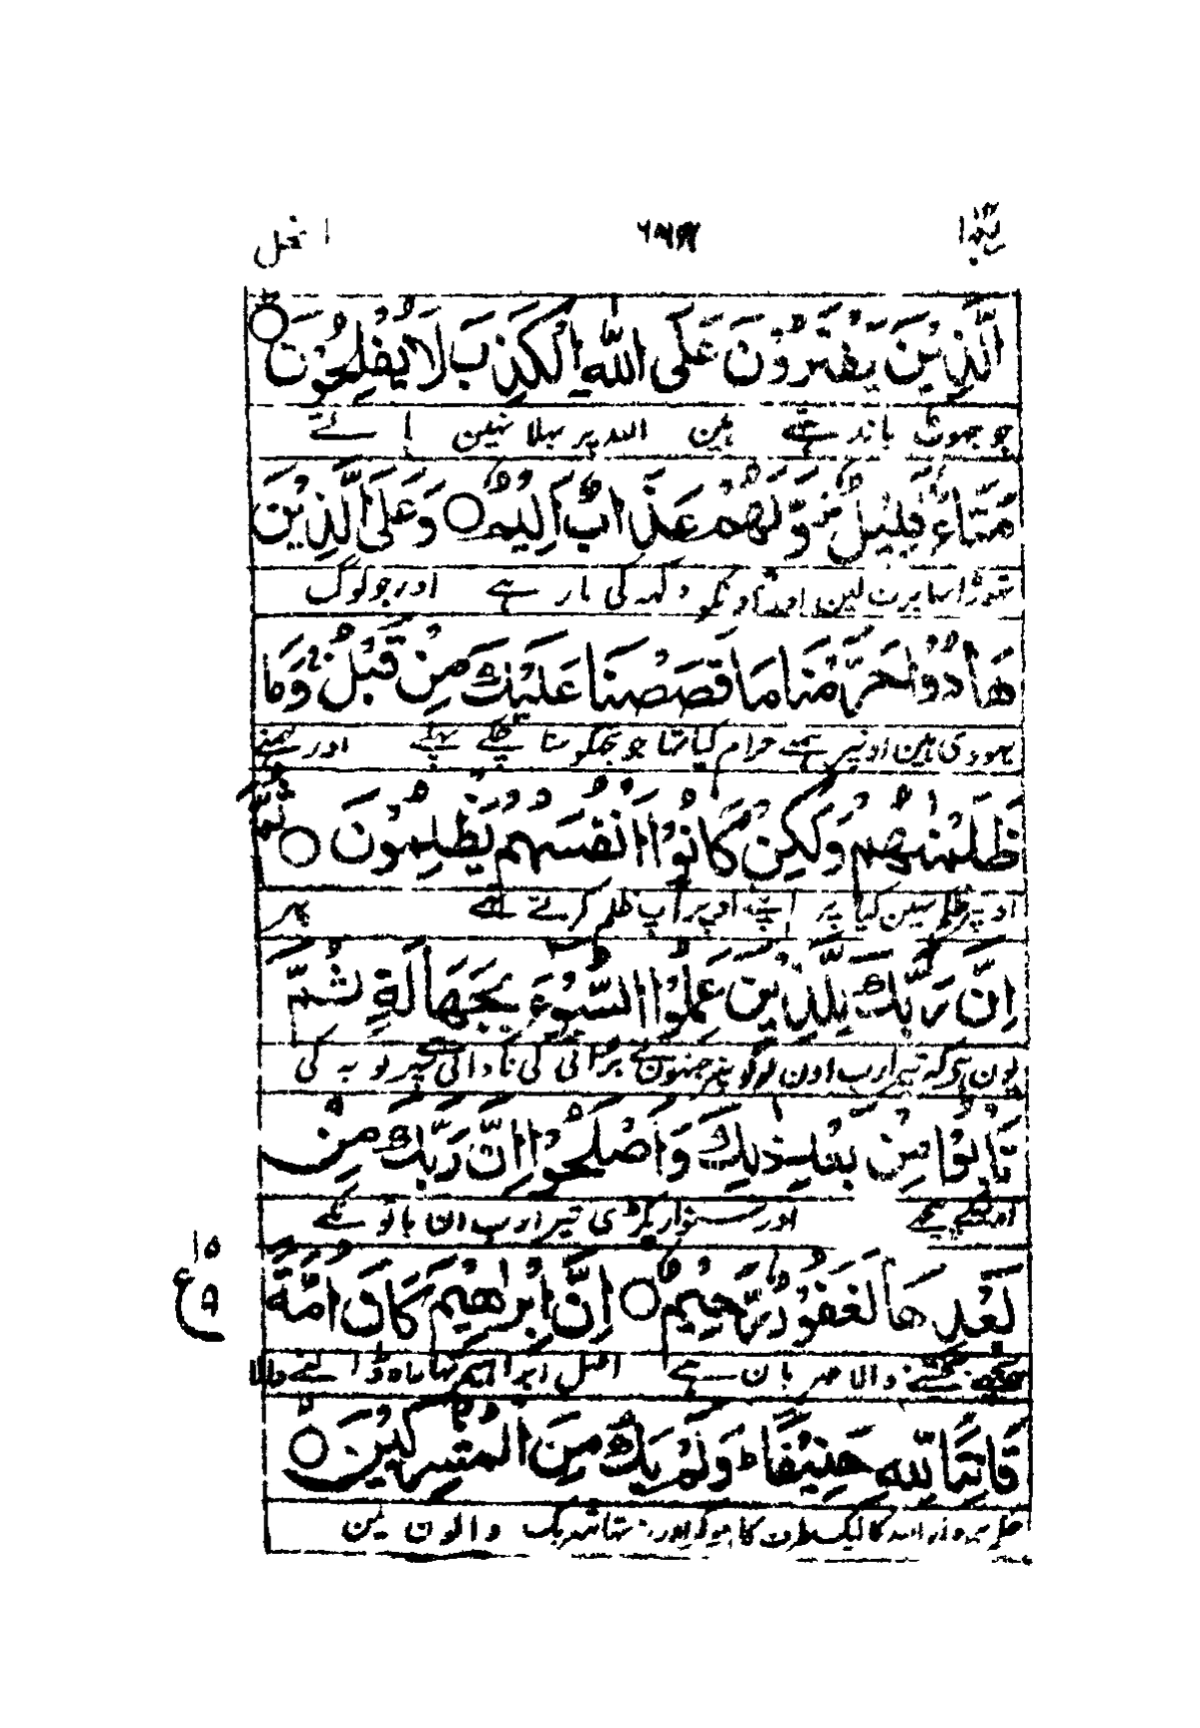 ربما النحل
الَّذِيْنَ يَفْتَرُوْنَ عَلَى اللّٰهِ الْكَذِبَ لَا يُفْلِحُوْنَ ○
جو جھوٹ باندھتے ہین اللہ پر بھلا نہین پاتے
مَتَاعٌ قَلِيْلٌ وَّلَهُمْ عَذَابٌ اَلِيْمٌ ○ وَعَلَى الَّذِيْنَ
تھوڑا سا برت لین اور اونکو دکھہ کی مار ہے اور جو لوگ
هَادُوْا حَرَّمْنَا مَا قَصَصْنَا عَلَيْكَ مِنْ قَبْلُ وَمَا
یہودی ہین اونپر ہمنے حرام کیا تھا جو تجھکو سنا چکے پہلے اور ہمنے
ظَلَمْنٰهُمْ وَلٰكِنْ كَانُوْا اَنْفُسَهُمْ يَظْلِمُوْنَ ○ ثُمَّ
اونپر ظلم نہین کیا پر اپنے اوپر آپ ظلم کرتے تھے پھر
اِنَّ رَبَّكَ لِلَّذِيْنَ عَمِلُوا السُّوْٓءَ بِجَهَالَةٍ ثُمَّ
یون ہے کہ تیرا رب اون لوگونپر جنھون نے برائی کی نادانی سے پھر توبہ کی
تَابُوْا مِنْ بَعْدِ ذٰلِكَ وَاَصْلَحُوْا اِنَّ رَبَّكَ مِنْ
اسکے پیچھے اور سنوار پکڑی تیرا رب ان باتونکے
بَعْدِهَا لَغَفُوْرٌ رَّحِيْمٌ ○ اِنَّ اِبْرٰهِيْمَ كَانَ اُمَّةً
پیچھے بخشنے والا مہربان ہے اصل ابراہیم تھا راہ ڈالنے والا
۱۵
ع
۹
قَانِتًا لِّلّٰهِ حَنِيْفًا ط وَلَمْ يَكُ مِنَ الْمُشْرِكِيْنَ ○
حکم بردار اللہ کا ایک طرف کا ہوکر اور نہ تھا شریک والون مین